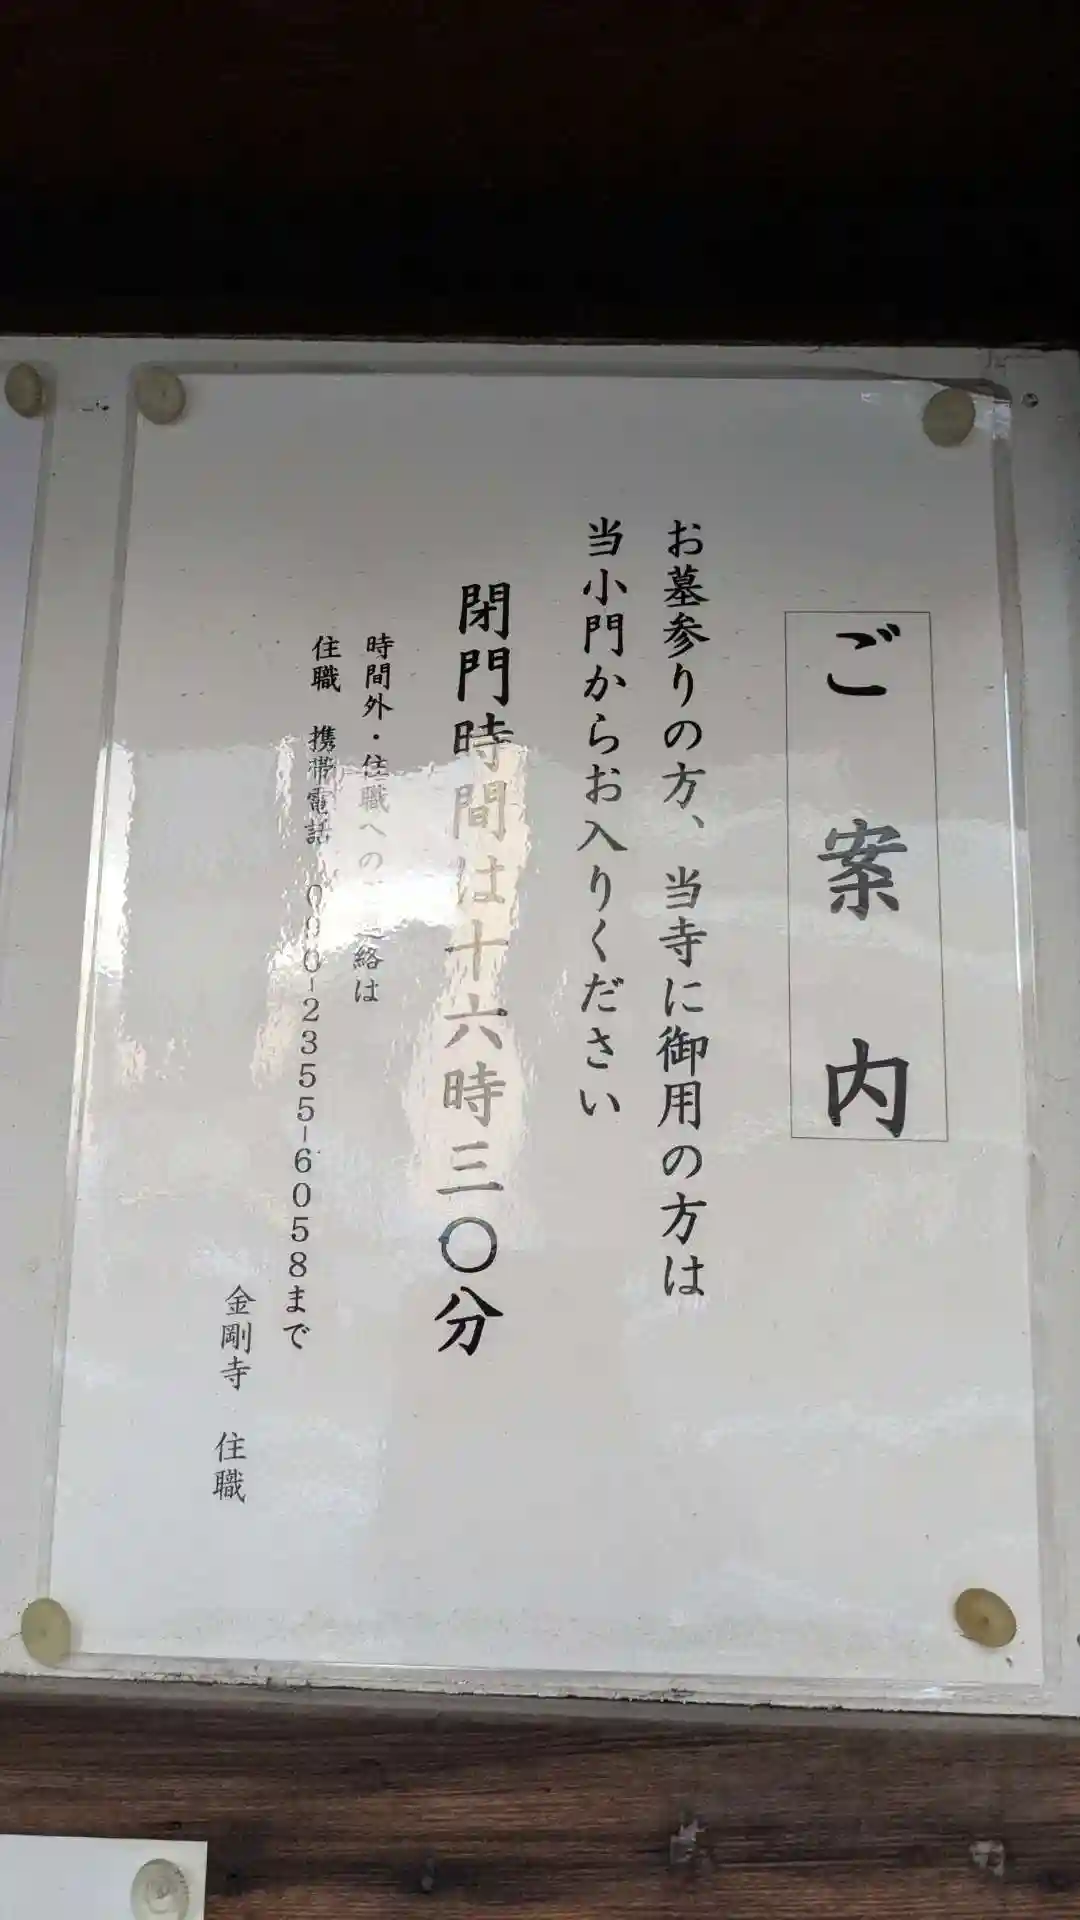 ご案内
お墓参りの方、当寺に御用の方は
当小門からお入りください
閉門時間は十六時三〇分
時間外・住職への 連絡は
住職 携帯電話 090-2355-6058まで
金剛寺 住職